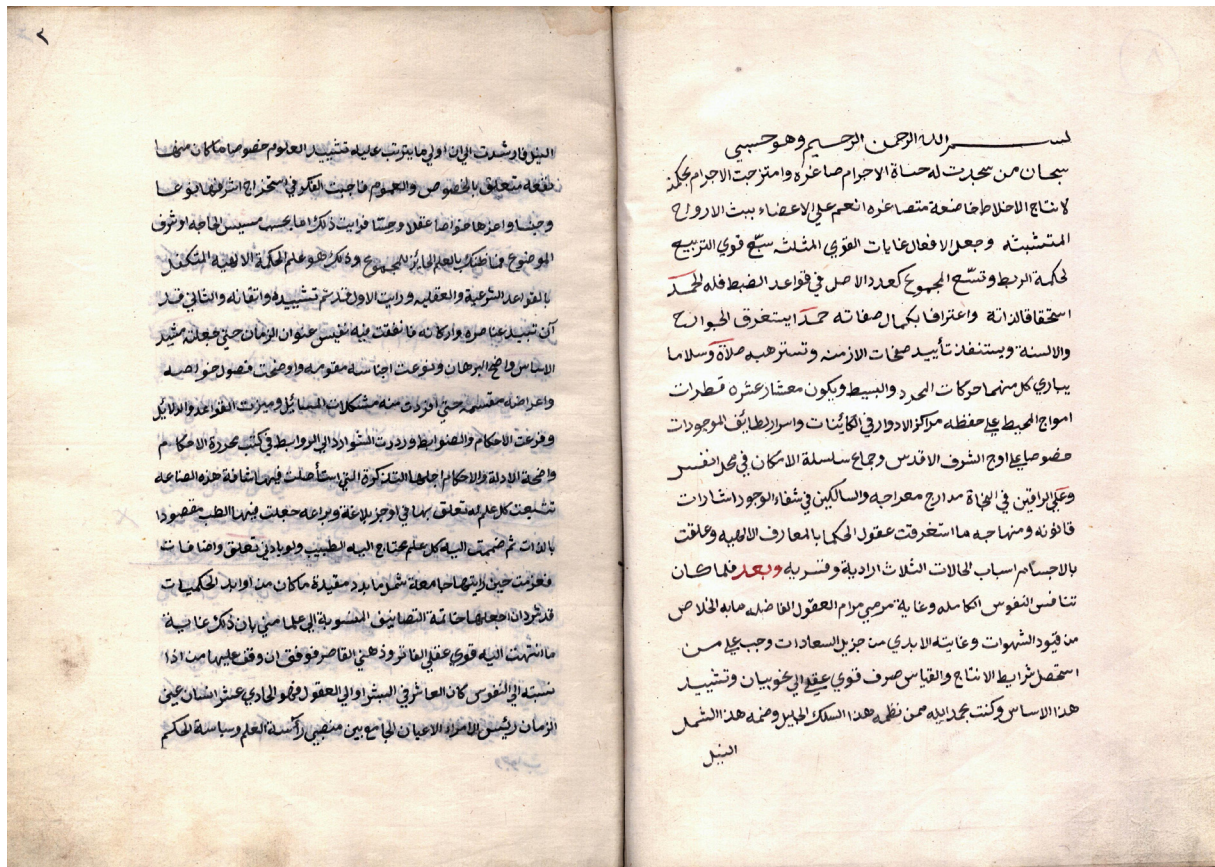 بسم الله الرحمن الرحيم وهو حسبي
سبحان من سجدت له جساة الاجرام صاغره وامتزجت الاجرام بحكمة
لانتاج الاخلاط خاضعة متصاغره انعم علي الاعضاء ببث الارواح
المتشبثه وجعل الافعال غايات القوي المثلثه سبّع قوي التربيع
لحكمة الربط وتسّع المجموع كعدد الاصل في قواعد الضبط فله الحمد
استحقاقا لذاته واعترافا بكمال صفاته حمدا يستغرق الجوارح
والالسنة ويستنفذ تأبيد صفحات الازمنه وتسترهبه صلاة وسلاما
يباري كل منهما حركات المحدد والبسيط ويكون معشار عشره قطرات
امواج المحيط علي حفظه مراكز الادوار في الكاينات واسرار لطائف الموجودات
خصوصا علي اوج الشرف الاقدس وجماع سلسلة الامكان في محل انفس
وعلي الراقين في النجاة مدارج معراجه والسالكين في شفاء الوجود اشارات
قانونه ومنهاجه ما استغرقت عقول الحكما بالمعارف الالهيه وعلقت
بالاجسام اسباب الحالات الثلاث ارادية وقسريه وبعد فلما كان
تنافس النفوس الكامله وغاية مرمي مرام العقول الفاضله ما به الخلاص
من قيود الشهوات وغايته الابدي من جزيل السعادات وجب علي من
استحصل شرايط الانتاج والقياس صرف قوي عقله الي نحو بيان وتشييد
هذا الاساس وكنت بحمد الله ممن نظمه هذا السلك الجليل وضمه هذا الشمل
النبل
٢
النبل فارشدت الي ان اولي ما يترتب عليه تشييد العلوم خصوصا ما كان منها
نفعه متعلق بالخصوص والعموم فاجبت الفكر في استخراج اشرفها نوعا
وجنسا واعزها خواصا عقلا وحسا فرايت ذلك اما بحسب مسيس الحاجه او شرف
الموضوع فما ظنك بالعلم الحايز للمجموع وذلك هو علم الحكمة الالهية المتكفل
بالقواعد الشرعية والعقليه ورايت الاول قد تم تشييده واتقانه والثاني قد
آن تبييد عناصره واركانه فانفقت فيه نفيس عنوان الزمان حتي جعلته مشيد
الاساس واضح البرهان ونوعت اجناسه مقومه واوضحت فصول خواصه
واعراضه مقسمه حتي افردت منه مشكلات المسايل وميزت القواعد والدلايل
وفرعت الاحكام والضوابط ورددت الشوارد الي الروابط في كتب محررة الاحكام
واضحة الادلة والاحكام اجلها التذكرة التي استأصلت فيها شافة هذه الصناعه
تشبعت كل علم له تعلق بها في اوجز بلاغة وبراعه جعلت فيها الطب مقصودا
بالذات ثم ضممت اليه كل علم يحتاج اليه الطبيب ولو بادني تعلق واضافات
فعزمت حين رايتها جامعة شمل ما بدد مقيدة ما كان من اوابد الحكميات
قد شرد ان اجعلها خاتمة التصانيف المنسوبة الي علما مني بان ذلك غاية
ما انتهت اليه قوي عقلي الفاتر وذهني القاصر فوفق ان وقف عليها من اذا
نسبته الي النفوس كان العاشر في البشر او الي العقول فهو الحادي عشر انسان عين
الزمان رئيس الامراء الاعيان الجامع بين منصبي رآسة العلم وسياسة الحكم